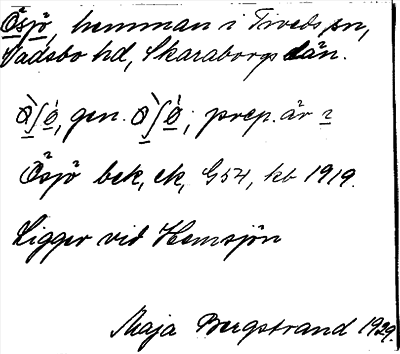 Ösjö, hemman i Tiveds sn,
Vadsbo hd, Skaraborgs län.
gen. prep. är i
Ösjö bek, ek, G54, kb 1919.
Ligger vid Hemsjön
Maja Bergstrand 1929.